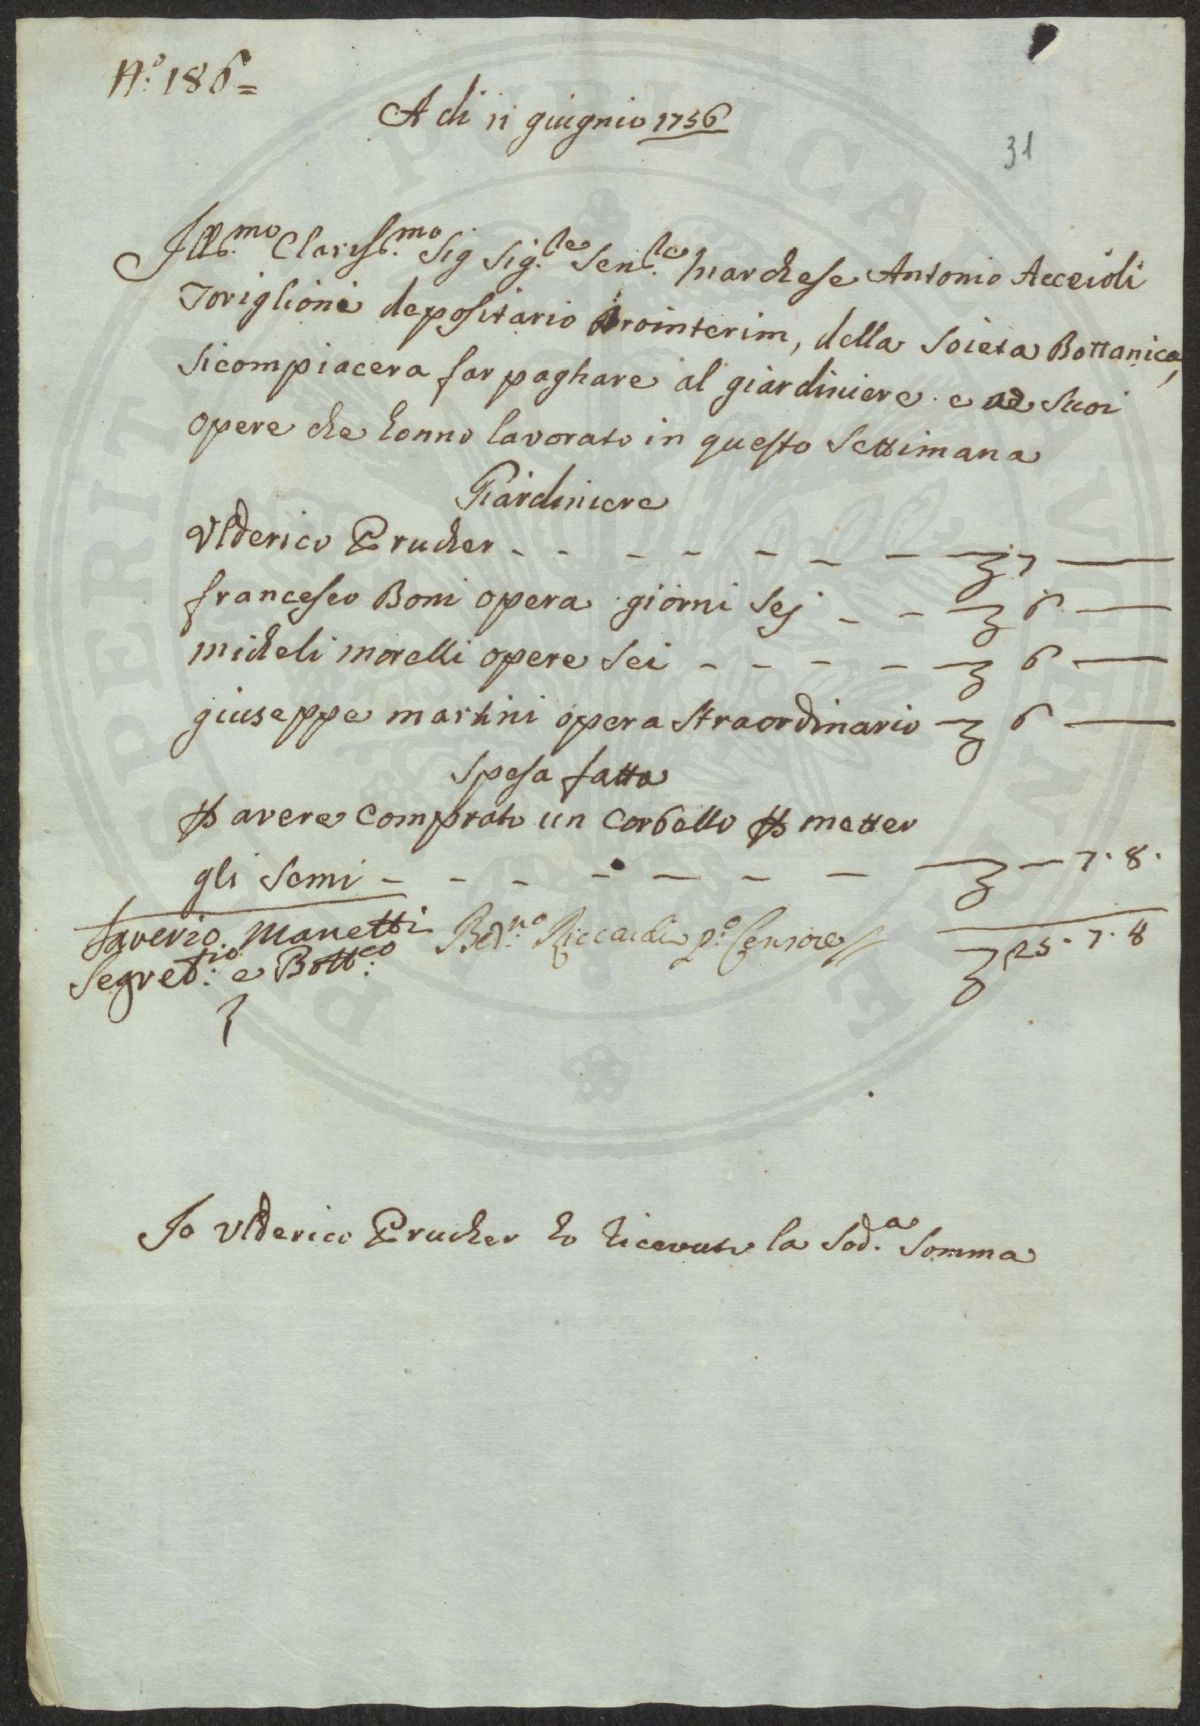 N.o 186=
A di 11 giugnio 1756
31
Ill.mo Clariss.mo Sig Sig.le Sen.le Marchese Antonio Acceioli
Toriglioni depositario prointerim, della Soieta Bottanica,
Sicompiacera far paghare al giardiniere e ad Suoi
opere che honno lavorato in questo Settimana
Giardiniere
Ulderico Prucher - - - - - - - - 7 —
francesco Boni opera giorni sej - - - 6 —
micheli morelli opere sei - - - - - 6 —
giuseppe martini opera straordinario - 6 —
spesa fatta
p avere comprato un corbello p metter
gli semi - - - - - - - - - 7. 8.
Saverio Manetti
Segret.rio e Bott.co
Bed.no Riccardi p.o Censore
25. 7. 8
Io Ulderico Prucher ho ricevuto la Sod.a Somma
PERITI PUBLICAE